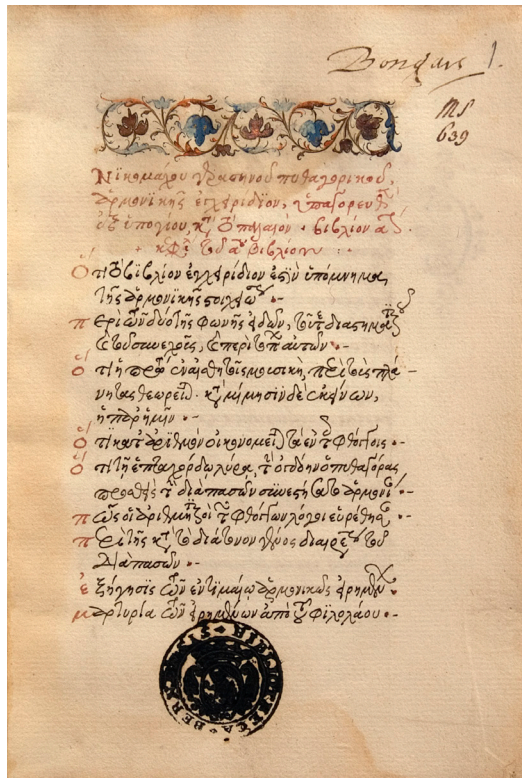 Bongars 1.
MS
639
Νικομάχου γερασηνοῦ πυθαγορικοῦ,
ἁρμονικῆς ἐγχειρίδιον, ὑπαγορευθὲν
ἐξ ὑπογύου κατὰ τὸ παλαιόν · βιβλίον αον.
κεφάλαια τοῦ αου βιβλίου
Ὅτι τὸ βιβλίον ἐγχειρίδιόν ἐστιν ὑπόμνημα
τῆς ἁρμονικῆς στοιχειώσεως ·-
περὶ τῶν δύο τῆς φωνῆς εἰδῶν, τοῦ τε διαστηματικοῦ
καὶ τοῦ συνεχοῦς, καὶ περὶ τόπων αὐτῶν ·-
Ὅτι ἡ πρώτη ἐν αἰσθητοῖς μουσικὴ, περὶ τοὺς πλά-
νητας θεωρεῖται. κατὰ μίμησιν δὲ ἐκείνων,
ἡ παρ' ἡμῖν ·-
Ὅτι κατ' ἀριθμὸν οἰκονομεῖται τὰ ἐν τοῖς φθόγγοις ·-
Ὅτι τῇ ἑπταχόρδῳ λύρᾳ, τὴν ὀγδόην ὁ πυθαγόρας
προσθεὶς τὴν διὰ πασῶν συνεστήσατο ἁρμονίαν ·-
πῶς οἱ ἀριθμητικοὶ τῶν φθόγγων λόγοι εὑρέθησαν ·-
περὶ τῆς κατὰ τὸ διάτονον γένος διαιρέσεως τοῦ
διὰ πασῶν ·-
ἐξήγησις τῶν ἐν τιμαίῳ ἁρμονικῶς εἰρημένων ·-
μαρτυρία τῶν εἰρημένων ἀπὸ τοῦ φιλολάου ·-
BIBLIOTHECA · BERNENSIS